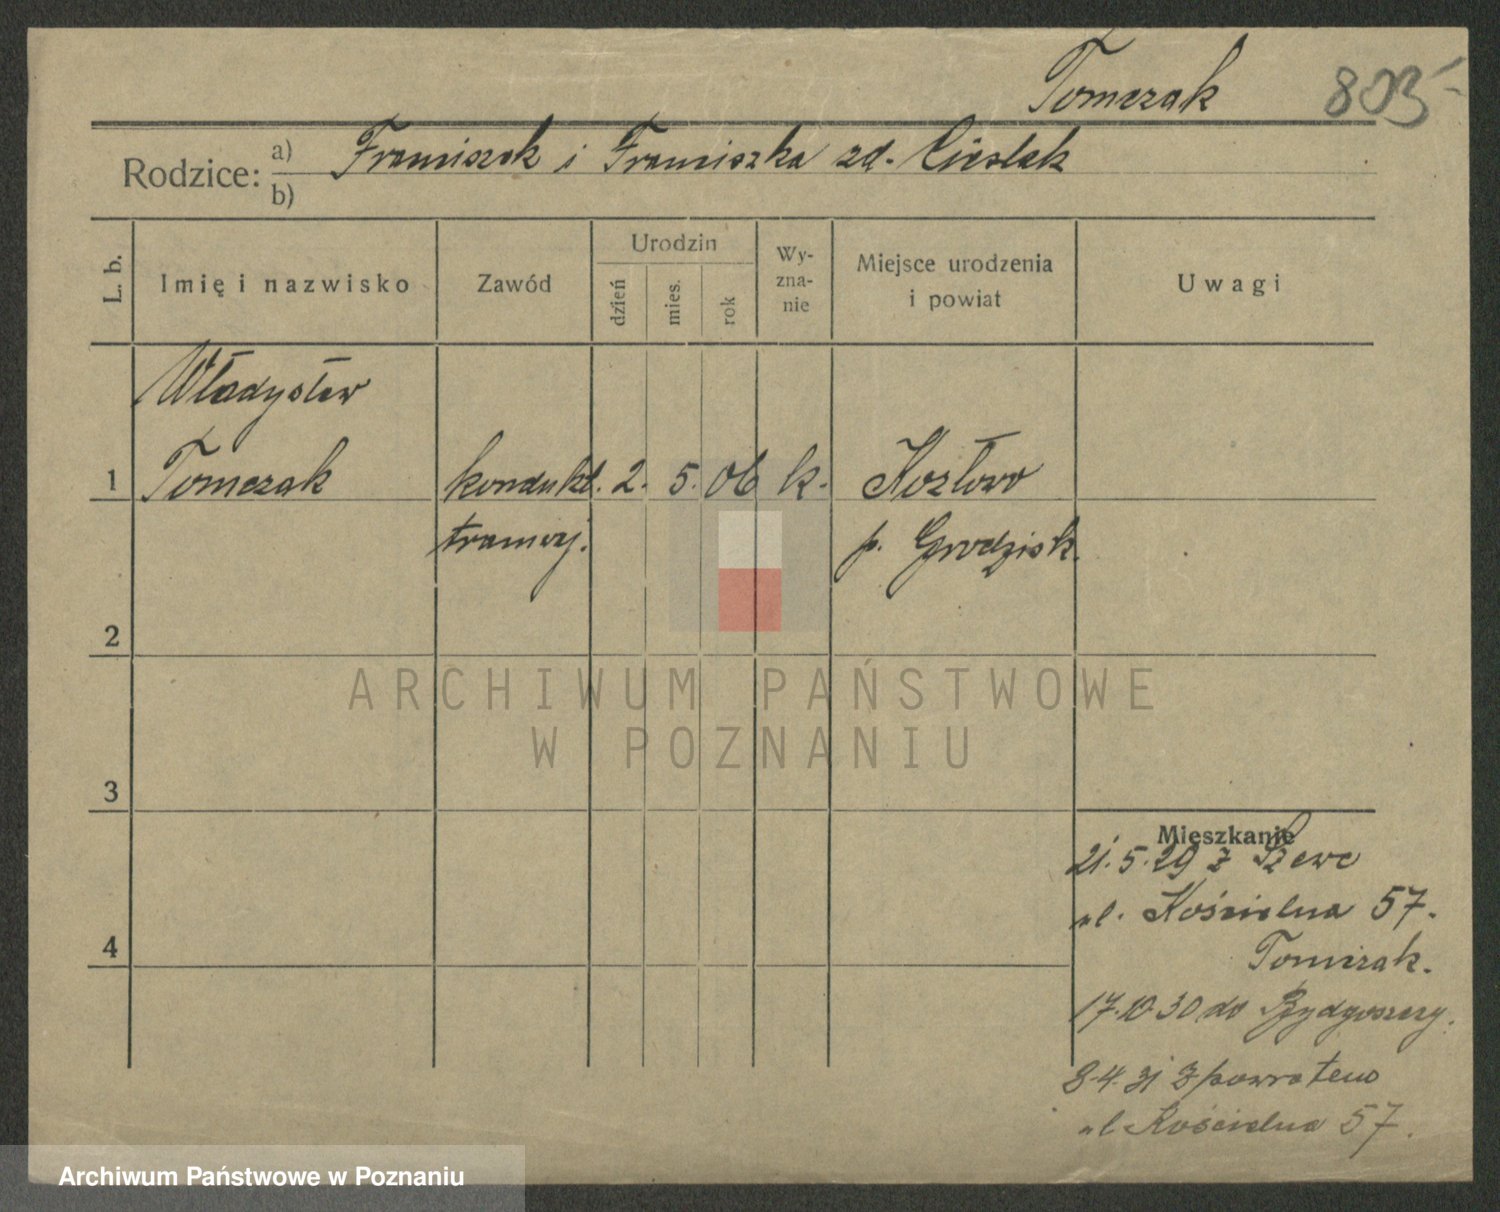 Tomczak
803
Rodzice: a) Franciszek i Franciszka zd. Cieślak
b)
L. b.
Imię i nazwisko
Zawód
Urodzin
dzień
mies.
rok
Wy-
zna-
nie
Miejsce urodzenia
i powiat
Uwagi
Władysław
1 Tomczak kondukt. 2. 5. 06 k. Kozłowo
tramwj. p. Grodzisk.
2
3
4
Mieszkanie
21.5.29 z Szewc
ul. Kościelna 57.
Tomczak.
17.10 30 do Bydgoszczy.
8.4.31 z powrotem
ul. Kościelna 57.
ARCHIWUM PAŃSTWOWE
W POZNANIU
Archiwum Państwowe w Poznaniu